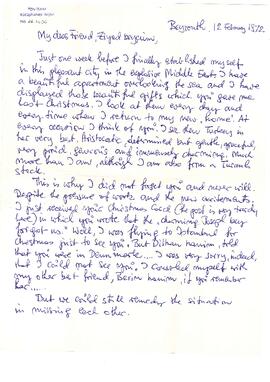 Beyrouth, 12 February 1972.
My dear Friend,
Just one week before I finally established myself
in this pleasant city in the explosive Middle East I have
a beautiful apartment overlooking the sea and I have
displayed those beautiful gifts which you gave me
last Christmas. I look at them every day and
every time when I return to my new 'home'. At
every occasion I think of you. I see how Turkey in
her very best. Aristocratic determined but gentle, graceful,
very proud, generous and immensely charming. Much
more than I am, although I am also from a
stock.
This is why I did not forget you and never will.
Despite the pressure of work and the new excitements;
I just received your Christmas Card (the post is very tricky
here) in which you wrote that "the charming bay
forgot us." Well, I was flying to Istanbul for
Christmas just to see you. But hanim, told
that you were in Denmark.... I was very sorry, indeed,
that I could not see you. I consoled myself with
my other best friend, hanim, if you remember
her.....
But we could still remedy the situation
in missing each other.